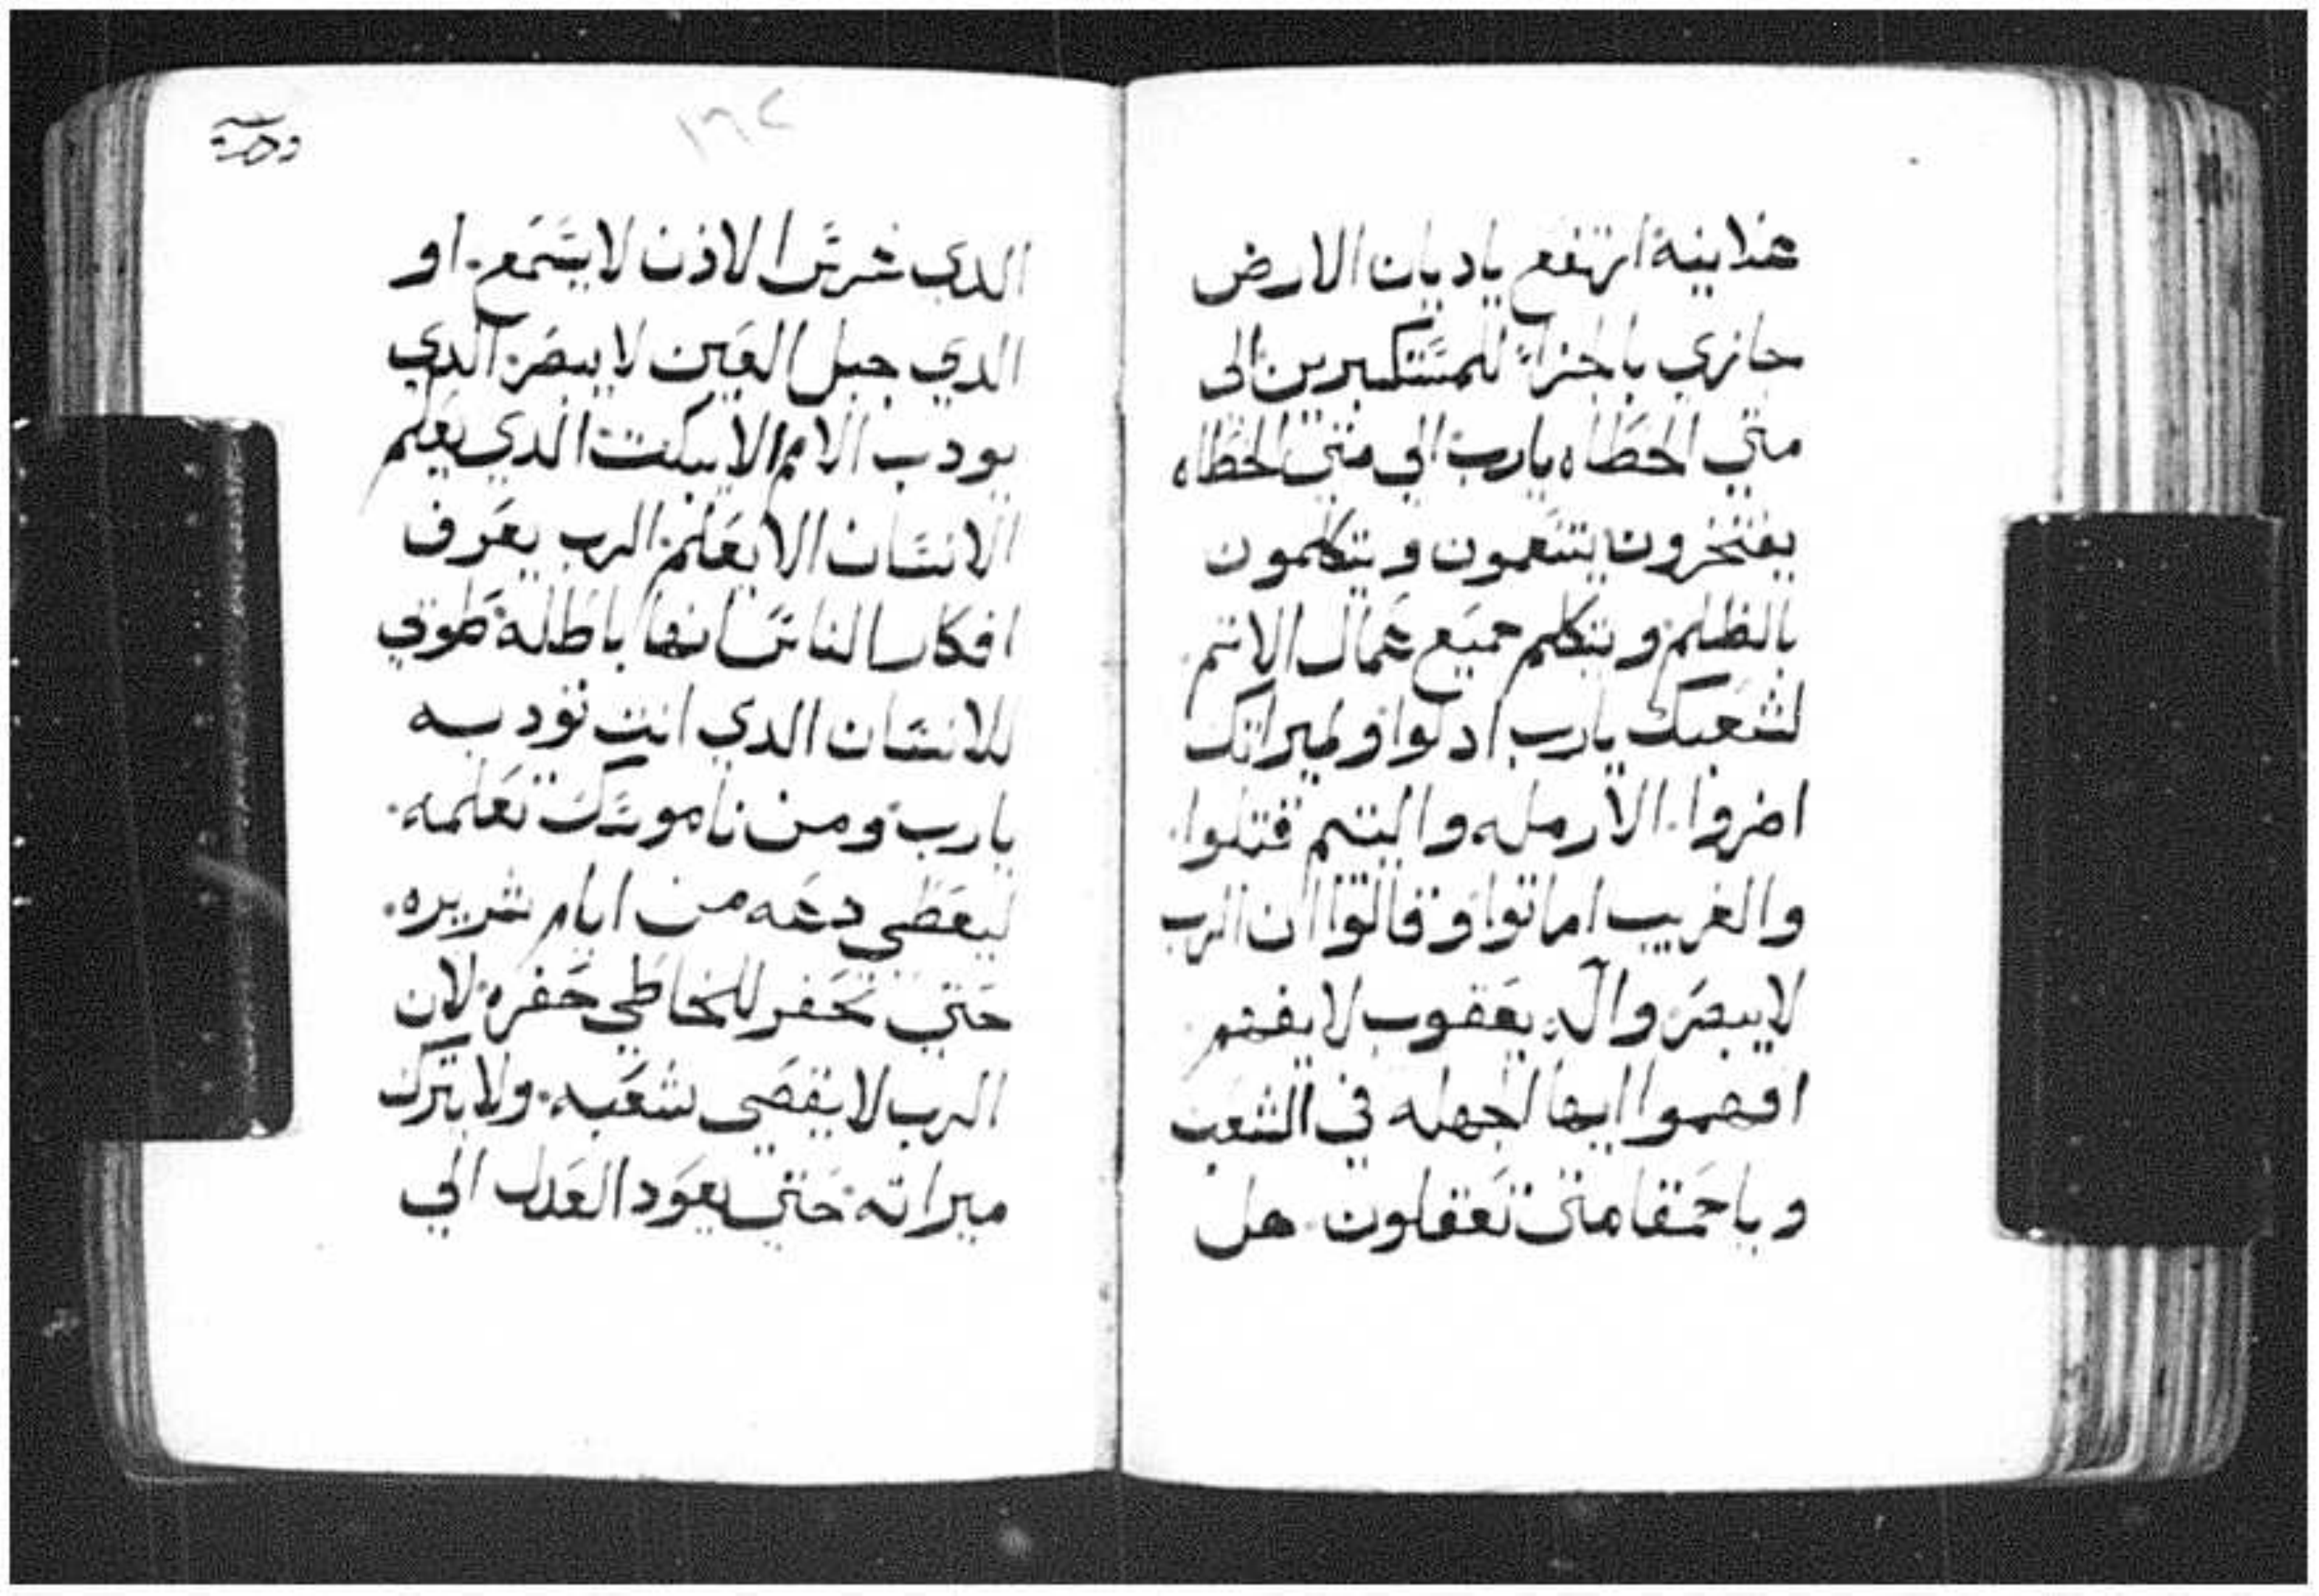 علانية ارتفع ياديان الارض
جازي بالجزاء للمستكبرين الى
متي الخطاه يارب الي متي الخطاه
يفتخرون يتنعمون ويتكلمون
بالظلم ويتكلم جميع عمال الاتم
لشعبك يارب ادلوا ولميراتك
اضروا. الارمله واليتيم قتلوا.
والغريب اماتوا وقالوا ان الرب
لايبصر واله يعقوب لايفهم
افهموا ايها الجهله في الشعب
وياحمقا متى تعقلون هل
١٦٢
الدي غرس الادن لايسمع. او
الدي جبل العين لايبصر الدي
يودب الامم الايبكت الدي يعلم
الانسان الايعلم الرب يعرف
افكار الناس انها باطلة طوبي
للانسان الدي انت تودبه
يارب ومن ناموسك تعلمه.
ليعطي دعه من ايام شريره.
حتي تحفر للخاطي حفره لان
الرب لايقصى شعبه. ولايترك
ميراته حتي يعود العدل الي